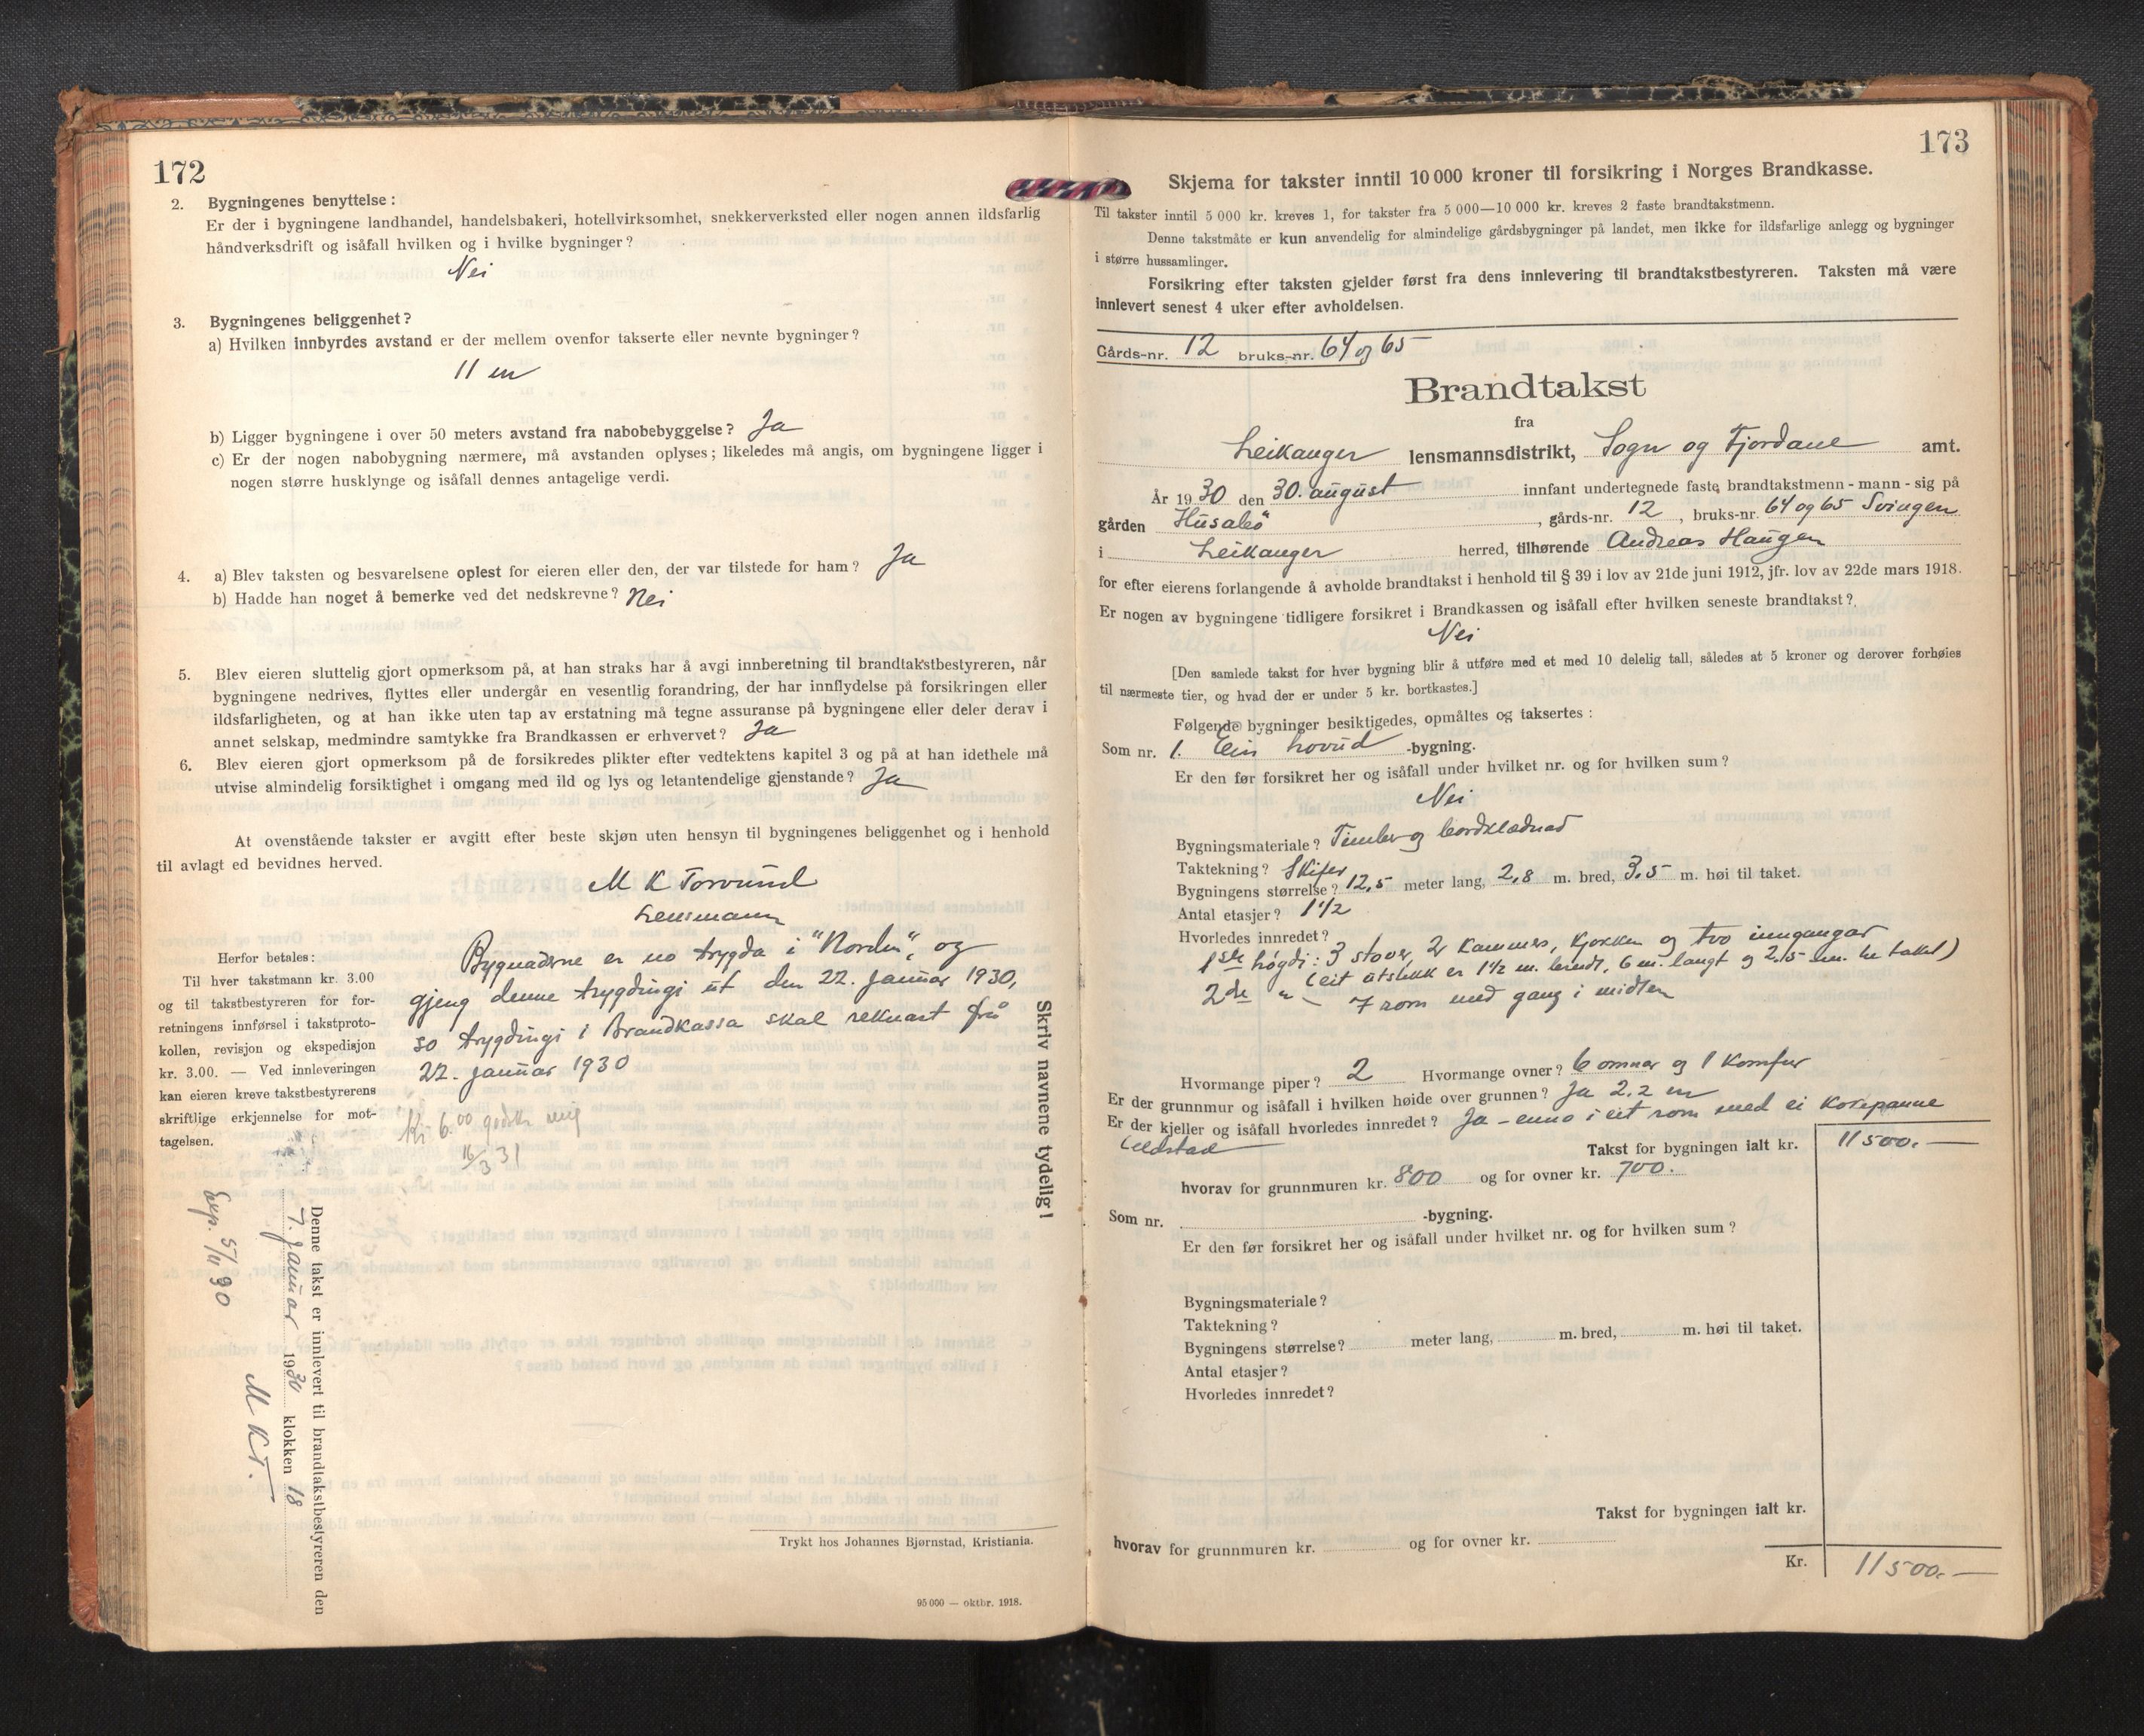 172
2. Bygningenes benyttelse:
Er der i bygningene landhandel, handelsbakeri, hotellvirksomhet, snekkerverksted eller nogen annen ildsfarlig
håndverksdrift og isåfall hvilken og i hvilke bygninger?
Nei
3. Bygningenes beliggenhet?
a) Hvilken innbyrdes avstand er der mellem ovenfor takserte eller nevnte bygninger?
11 m
b) Ligger bygningene i over 50 meters avstand fra nabobebyggelse? Ja
c) Er der nogen nabobygning nærmere, må avstanden oplyses; likeledes må angis, om bygningene ligger i
nogen større husklynge og isåfall dennes antagelige verdi.
4. a) Blev taksten og besvarelsene oplest for eieren eller den, der var tilstede for ham? Ja
b) Hadde han noget å bemerke ved det nedskrevne? Nei
5. Blev eieren sluttelig gjort opmerksom på, at han straks har å avgi innberetning til brandtakstbestyreren, når
bygningene nedrives, flyttes eller undergår en vesentlig forandring, der har innflydelse på forsikringen eller
ildsfarligheten, og at han ikke uten tap av erstatning må tegne assuranse på bygningene eller deler derav i
annet selskap, medmindre samtykke fra Brandkassen er erhvervet? Ja
6. Blev eieren gjort opmerksom på de forsikredes plikter efter vedtektens kapitel 3 og på at han idethele må
utvise almindelig forsiktighet i omgang med ild og lys og letantendelige gjenstande? Ja
At ovenstående takster er avgitt efter beste skjøn uten hensyn til bygningenes beliggenhet og i henhold
til avlagt ed bevidnes herved.
M K Torvund
Lensmann
Bygnaderne er no trygda i "Norden", og
gjeng denne trygdingi ut den 22. januar 1930,
so trygdingi i Brandkassa skal reknast frå
22. januar 1930
Herfor betales:
Til hver takstmann kr. 3.00
og til takstbestyreren for for-
retningens innførsel i takstproto-
kollen, revisjon og ekspedisjon
kr. 3.00. — Ved innleveringen
kan eieren kreve takstbestyrerens
skriftlige erkjennelse for mot-
tagelsen.
Kr 6.00
16/3 31
Skriv navnene tydelig!
Denne takst er innlevert til brandtakstbestyreren den
7. januar 1930 klokken 18
M K T.
Exp. 5/11 30
Trykt hos Johannes Bjørnstad, Kristiania.
95 000 — oktbr. 1918.
173
Skjema for takster inntil 10 000 kroner til forsikring i Norges Brandkasse.
Til takster inntil 5 000 kr. kreves 1, for takster fra 5 000—10 000 kr. kreves 2 faste brandtakstmenn.
Denne takstmåte er kun anvendelig for almindelige gårdsbygninger på landet, men ikke for ildsfarlige anlegg og bygninger
i større hussamlinger.
Forsikring efter taksten gjelder først fra dens innlevering til brandtakstbestyreren. Taksten må være
innlevert senest 4 uker efter avholdelsen.
Gårds-nr. 12 bruks-nr. 64 og 65
Brandtakst
fra
Leikanger lensmannsdistrikt, Sogn og Fjordane amt.
År 1930 den 30. august innfant undertegnede faste brandtakstmenn - mann - sig på
gården Husabø, gårds-nr. 12, bruks-nr. 64 og 65 Svingen
i Leikanger herred, tilhørende Andreas Haugen
for efter eierens forlangende å avholde brandtakst i henhold til § 39 i lov av 21de juni 1912, jfr. lov av 22de mars 1918.
Er nogen av bygningene tidligere forsikret i Brandkassen og isåfall efter hvilken seneste brandtakst?
Nei
[Den samlede takst for hver bygning blir å utføre med et med 10 delelig tall, således at 5 kroner og derover forhøies
til nærmeste tier, og hvad der er under 5 kr. bortkastes.]
Følgende bygninger besiktigedes, opmåltes og taksertes:
Som nr. 1. Ein hovud -bygning.
Er den før forsikret her og isåfall under hvilket nr. og for hvilken sum?
Nei
Bygningsmateriale? Timber og bordklædnad
Taktekning? Skifer
Bygningens størrelse? 12,5 meter lang, 2,8 m. bred, 3,5 m. høi til taket.
Antal etasjer? 1 1/2
Hvorledes innredet?
1ste høgdi: 3 stover, 2 kammers, kjøkken og tvo inngangar
(eit utstikk er 1 1/2 m. breidt, 6 m. langt og 2,15 m. til taket)
2de " — 7 rom med gang i midten
Hvormange piper? 2 Hvormange ovner? 6 omnar og 1 komfur
Er der grunnmur og isåfall i hvilken høide over grunnen? Ja 2,2 m
Er der kjeller og isåfall hvorledes innredet? Ja - i eit rom med ei
Eldstad
Takst for bygningen ialt kr. 11500.—
hvorav for grunnmuren kr. 800 og for ovner kr. 700.
Som nr. -bygning.
Er den før forsikret her og isåfall under hvilket nr. og for hvilken sum?
Bygningsmateriale?
Taktekning?
Bygningens størrelse? meter lang, m. bred, m. høi til taket.
Antal etasjer?
Hvorledes innredet?
Takst for bygningen ialt kr.
hvorav for grunnmuren kr. og for ovner kr.
Kr. 11500.—